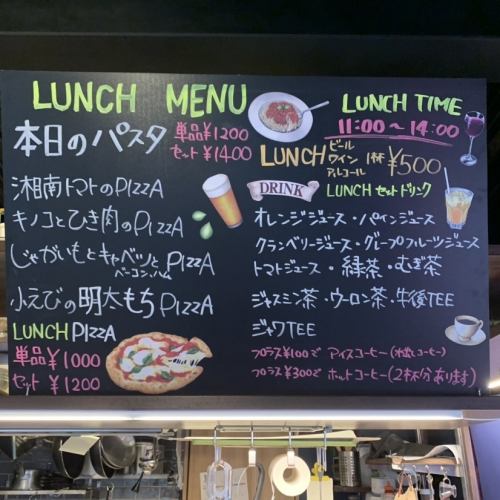 LUNCH MENU
本日のパスタ 単品¥1200
セット¥1400
湘南トマトのPIZZA
キノコとひき肉のPIZZA
じゃがいもとキャベツとPIZZA
ベーコン,ハム
小えびの明太もちPIZZA
LUNCH PIZZA
単品¥1000
セット¥1200
LUNCH TIME
11:00～14:00
LUNCH ビール
ワイン 1杯 ¥500
アルコール
DRINK LUNCHセットドリンク
オレンジジュース・パインジュース
クランベリージュース・グレープフルーツジュース
トマトジュース・緑茶・むぎ茶
ジャスミン茶・ウーロン茶・午後TEE
ジャワTEE
プラス¥100で アイスコーヒー(水出しコーヒー)
プラス¥300で ホットコーヒー(2杯分あります)